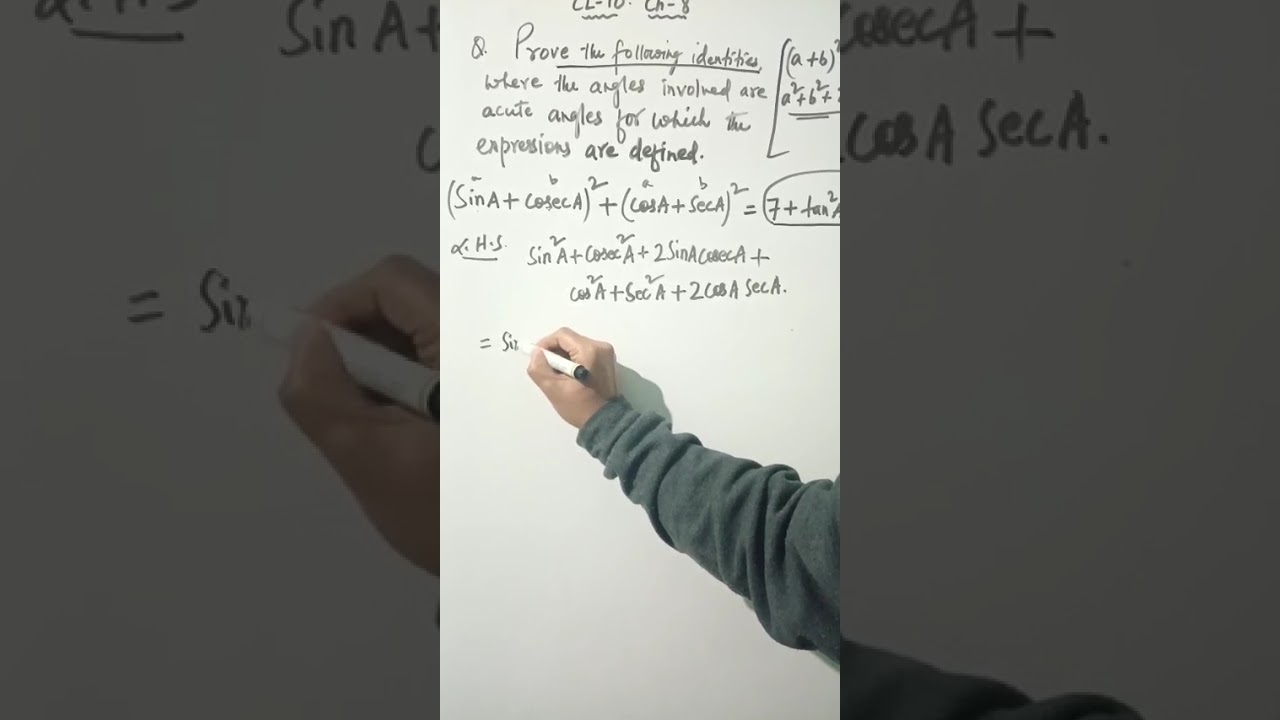 CL-10. Ch-8
Q. Prove the following identities,
where the angles involved are
acute angles for which the
expressions are defined.
[(a+b)²
a²+b²+
a b a b
(SinA + cosecA)² + (cosA + SecA)² = 7 + tan²A
L.H.S. Sin²A + Cosec²A + 2SinA cosecA +
cos²A + Sec²A + 2cosA SecA.
= Sin